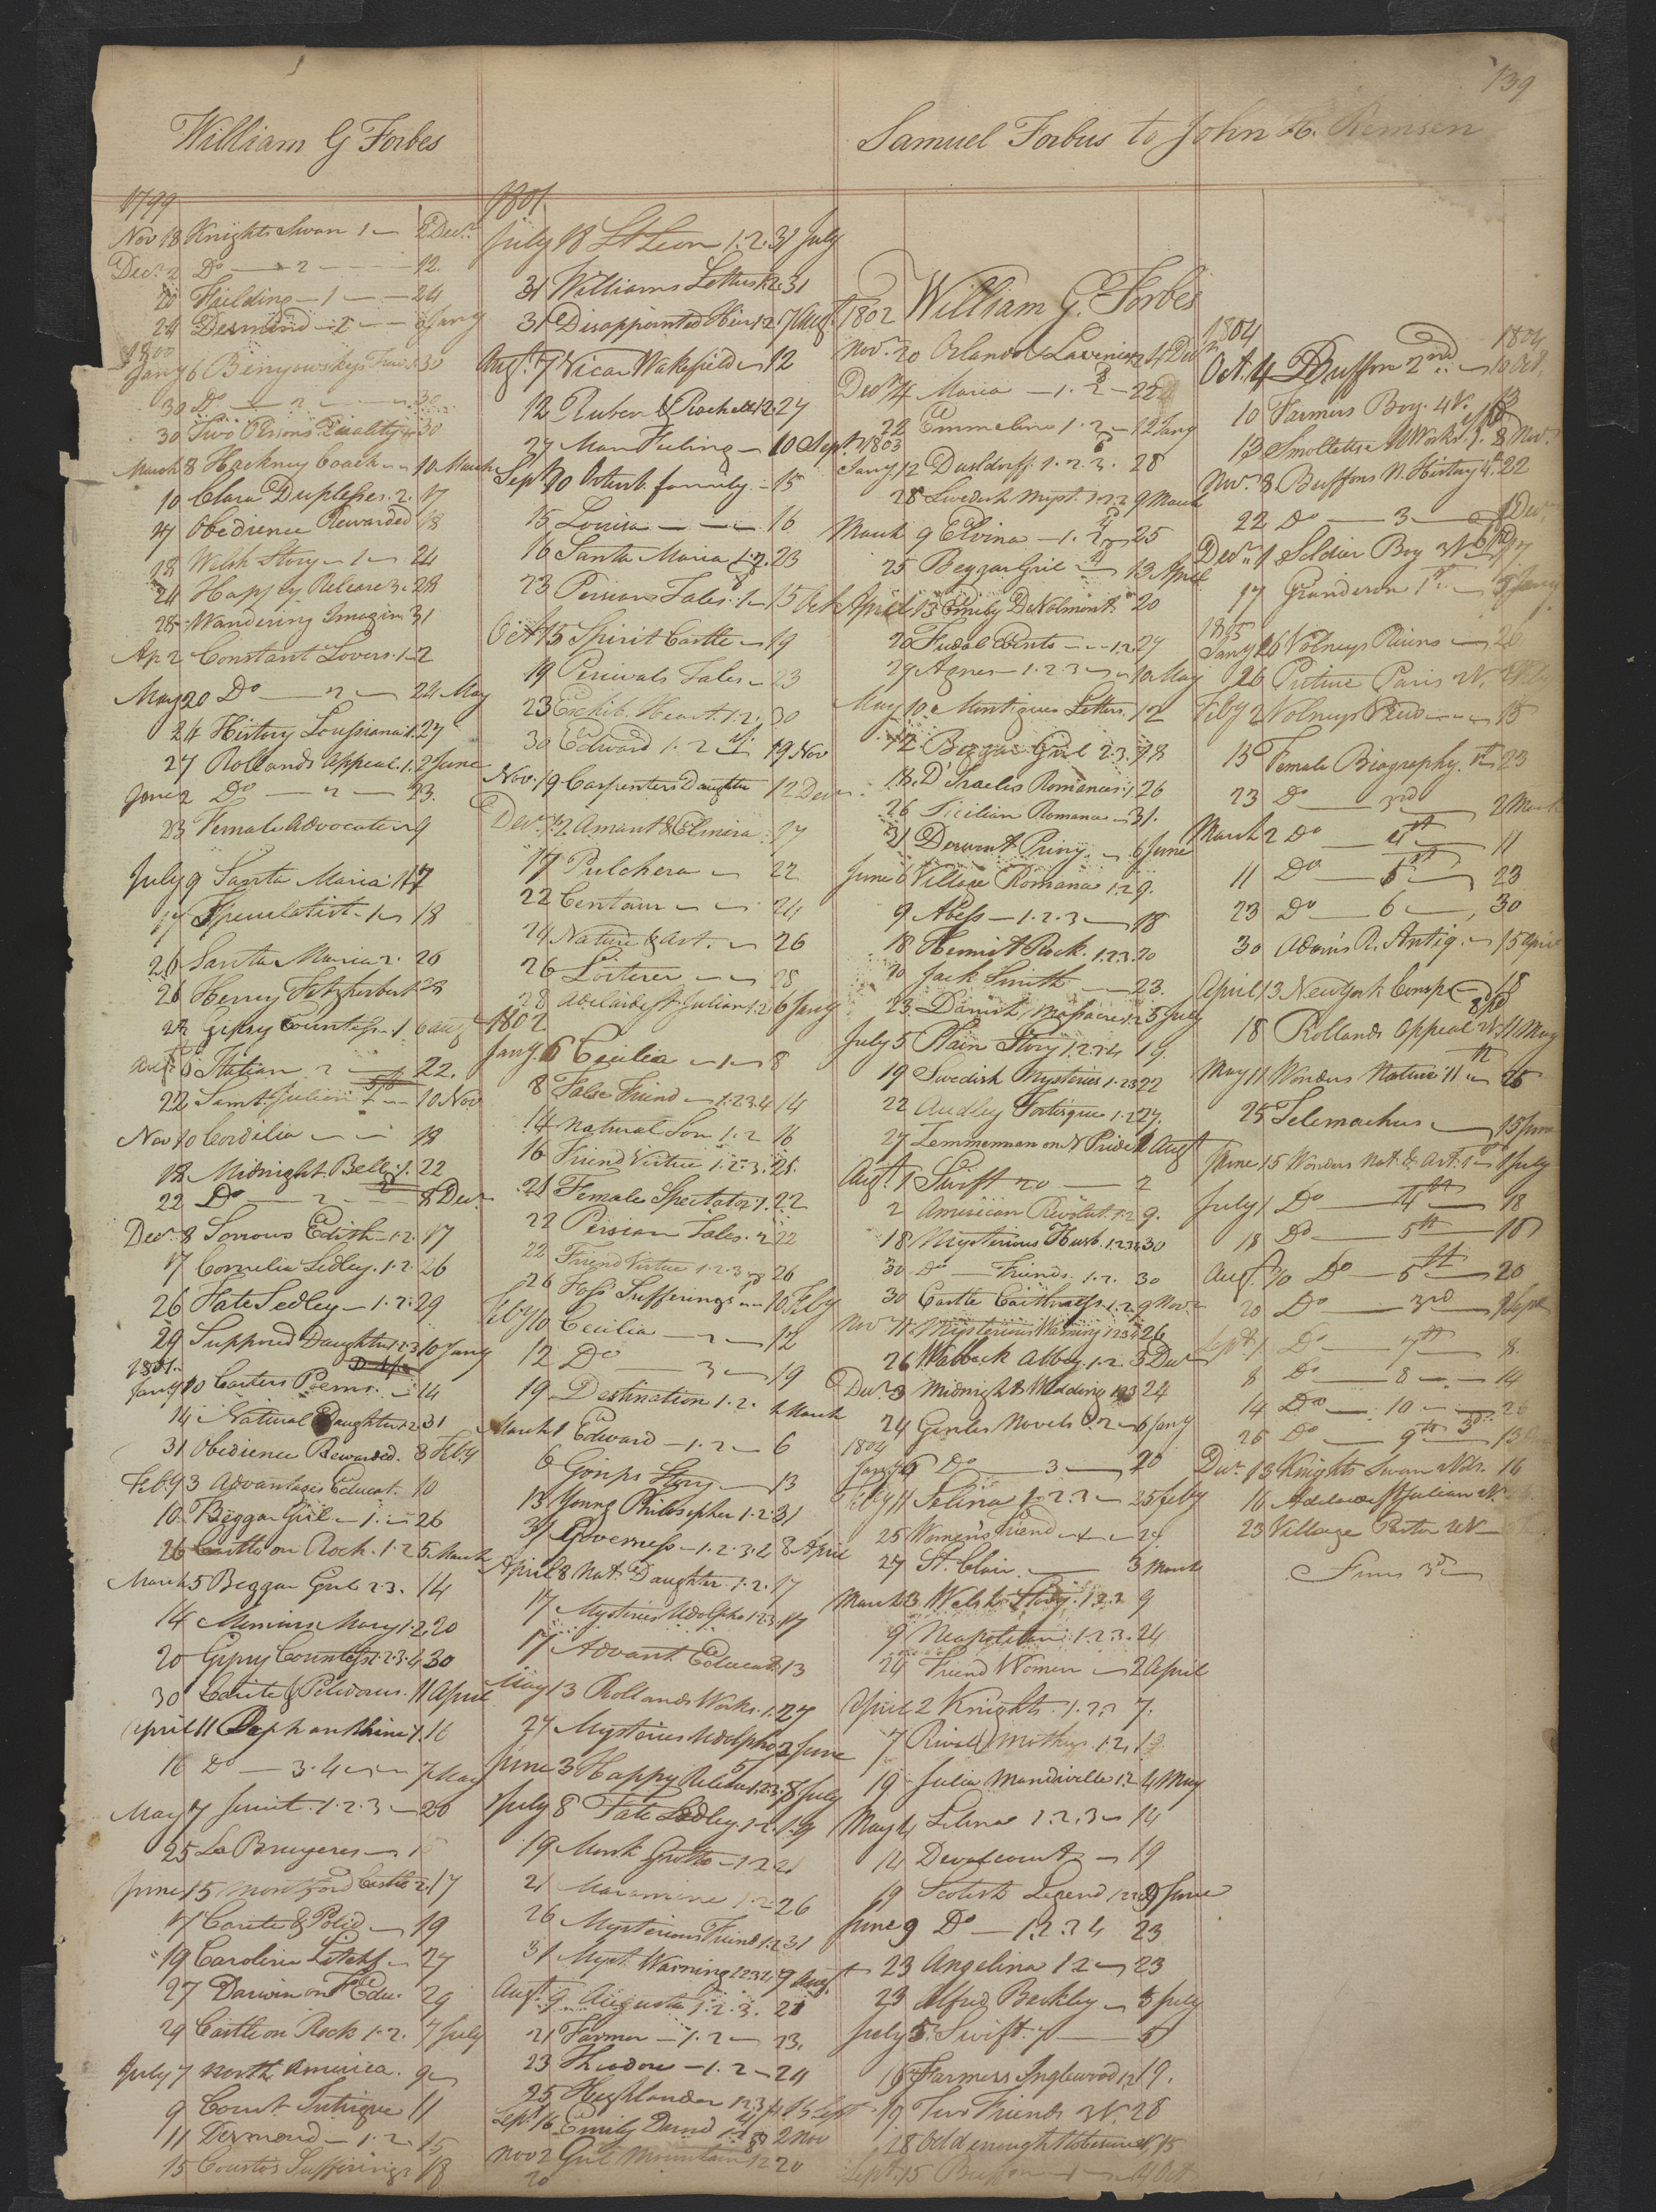 139
William G Forbes
Samuel Forbus to John H. Remsen
1799
Nov 18 Knights Swan 1 2 Decr.
Decr. 2 Do 2 12.
20 Fielding 1 24
24 Desmond 2 6 Jany
1800
Jany 6 Benyowskys 30
30 Do 2 30
30 Two Persons Quality 30
March 8 Hackney Coach 10 March
10 Clara Duplesses. 2. 17
17 Obedience Rewarded 18
18 Welsh Story 1 24
24 Happy Release 3. 28
28 Wandering Imagin 31
Ap 2 Constant Lovers. 1 2
May 20 Do 2 24 May
24 History Louisiana 1. 27
27 Rollands Appeal. 1. 2 June
June 2 Do 2 23.
23 Female Advocate 9
July 9 Santa Maria 1 17
17 Speculatist. 1 18
26 Santa Maria 2. 26
26 Henry Fitzherbert 28
28 Gipsy Countess 1 6 Aug
6 Italian 2 22.
22 Saint Julien 10 Nov
Nov 10 Cordelia 18
18 Midnight Bell. 1. 22
22 Do 2 8 Decr
Decr. 8 Sorrows Edith 1.2. 17
17 Cornelia Sedley. 1.2. 26
26 Fate Sedley 1.2. 29
29 Supposed Daughter 1.2.3 10 Jany
1801.
Jany 10 Carters Poems. 14
14 Natural Daughter 1.2 31
31 Obedience Rewarded. 8 Feby
Feby 3 Advantages Educat. 10
10 Beggar Girl 1. 26
26 Castle on Rock. 1.2 5 March
March 5 Beggar Girl 2.3. 14
14 Memoirs Mary 1.2. 20
20 Gipsy Countess 1.2.3.4 30
30 Carite & Polidorus. 11 April
April 11 1. 16
16 Do 3.4 7 May
May 7 1.2.3 20
25 La Bruyeres
June 15 Montford Castle 2. 17
17 Carite & Polid 19
19 Caroline Litchf 27
27 Darwin on Fle Edu. 29
29 Castle on Rock 1.2. 7 July
July 7 North America. 9
9 Court Intrigue 11
11 Desmond 1.2. 15
15 Coustos Sufferings 18
1801
July 18 St Leon 1.2. 31 July
31 Williams Letters 1.2. 31
31 Disappointed Heir 1.2 7 Augt
Augt. 7 Vicar Wakefield 12
12 Ruben & Rachel 1.2. 27
27 Man Feeling 10 Sept.
Sept 10 family 15
15 Louisa 16
16 Santa Maria 1.2. 23
23 Persians Tales. 1 15 Oct
Oct 15 Spirit Castle 19
19 Percivals Tales 23
23 Exhib. Heart. 1.2. 30
30 Edward 1.2 19 Nov
Nov. 19 Carpenters Daughter 12 Decr
Decr. 12 Amant & Elmira. 17
17 Pulchera 22
22 Centaur 24
24 Nature & Art. 26
26 Loiterer 28
28 Adelaide St Julian 1.2 6 Jany
1802
Jany. 6 Cecilia 1 8
8 False Friend 1.2.3.4 14
14 Natural Son 1.2 16
16 Friend Virtue 1.2.3. 21.
21 Female Spectator 1. 22
22 Persian Tales. 2 22
22 Friend Virtue 1.2.3 26
26 Foss Sufferings 10 Feby
Feby 10 Cecilia 2 12
12 Do 3 19
19 Destination 1.2. 1 March
March 1 Edward 1.2 6
6 Gossips Story 13
13 Young Philosopher 1.2 31
31 Governess 1.2.3.4 8 April
April 8 Nat. Daughter. 1.2. 17
17 Mysteries Udolpho 1.2.3. 17
17 Advant Educat. 13
May 13 Rollands Works. 1. 27
27 Mysteries Udolpho 3 June
June 3 Happy Release 1.2.3. 8 July
July 8 Fate Sedley 1.2. 19
19 Monk Grotto 1.2 21
21 1.2 26
26 Mysterious Friend 1.2 31
31 Myst. Warning 1.2.3.4 9 Augt
Augt. 9 Augusta 1.2.3. 21
21 Farmer 1.2 23.
23 Theodore 1.2 24
25 Highlander 1.2.3.4 16 Sept
Sept. 16 Emily 2 Nov
Nov 2 Girl Mountain 1.2 20
20
1802 William G. Forbes
Nov. 20 Orlando & Lavinia 1.2 4 Decr
Decr 4 Maria 1. 2 22
22 Emmeline 1.2 12 Jany
1803
Jany 12 Dusldorf. 1.2.3. 28
28 Swedish Myst. 1.2.3 9 March
March 9 Elvina 1.2 25
25 Beggar Girl 13 April
April 13 Emily De Valmont. 20
20 Fudal Events 1.2. 27
27 Agnes 1.2.3 10 May
May 10 Montigues Letters 12
12 Beggar Girl 2.3. 18
18. D'Israelis Romances 1 26
26 Sicilian Romance 31.
31 Derwent Priory. 6 June
June 6 Village Romance 1.2 9.
9 Abess 1.2.3 18
18 Hermit Rock. 1.2.3. 20
20 Jack Smith 23.
23. Danish Massacre 1.2 5 July
July 5 Plain Story 1.2.3.4 19.
19 Swedish Mysteries 1.2.3 22
22 Audley Fortesque 1.2 27.
27 Zemmerman on N Pride 1 Augt
Augt. 1 Swift 20 2
2 American Revolut. 1.2 9.
18 Mysterious Husb. 1.2.3.4 30
30 Do Friends. 1.2. 30
30 Castle Caithness. 1.2. 9 Novr
Nov 11 Mysterious Warning 1.2.3.4 26
26 Walbeck Abbey. 1.2. 3 Decr
Decr. 3 Midnight Wedding 1.2.3 24
24 Genlis Novels 1.2 6 Jany
1804
Jany 6 Do 3 20
Feby 11 Selina 1.2.3 25 Feby
25 Womens Friend 27
27 St. Clair 3 March
March 3 Welsh Story. 1.2.3 9
9 Neapolitan. 1.2.3. 24
24 Friend Women 2 April
April 2 Knights. 1.2. 7.
7 Rival Mothers. 1.2, 19
19 Julia Mandiville 1.2 4 May
May 4 Selina 1.2.3 14
14 Devalcourt 19
19 Scotish Legend 1.2.3 9 June
June 9 Do 1.2.3.4 23
23 Angelina 1 2 23
23 Alfred Beckley 5 July
July 5. Swift. 7 5
16 Farmers Inglewood 1.2 17.
19 Two Friends W. 28
28 Old enough to be wiser 15
Sept. 15 Buffon 1 4 Oct
1804
1804
Oct. 4 Buffon 2nd 10 Oct.
10 Farmers Boy. 4V. 13
13 Smolletts W Works. 1. 8 Novr.
Novr. 8 Buffons N. History 4. 22
22 Do 3 1 Decr.
Decr. 1 Soldier Boy W 17
17 Granderson 1st Jany
1805
Jany 26 Volneys Ruins 26
26 Picture Paris W. 2 Feby
Feby 2 Volneys 15
15 Female Biography. 23
23 Do 3rd 2 March
March 2 Do 4th 11
11 Do 5th 23
23 Do 6 30
30 Adams R. Antiq. 15 April
April 13 New York Consp 18
18 Rollands Appeal W. 11 May
May 11 Wonders Nature 11 25
25 Telemachus 15 June
June 15 Wonders Nat. & Art. 1 1 July
July 1 Do 4th 18
18 Do 5th 18
Augt. 10 Do 6th 20
20 Do 3rd 1 Sept
Sept. 1 Do 7th 8.
8 Do 8 14
14 Do 10 26
26 Do 9th 13
Decr. 13 Knights Swan 16
16 Adelaide St Julian W.
23 Village Pastor W